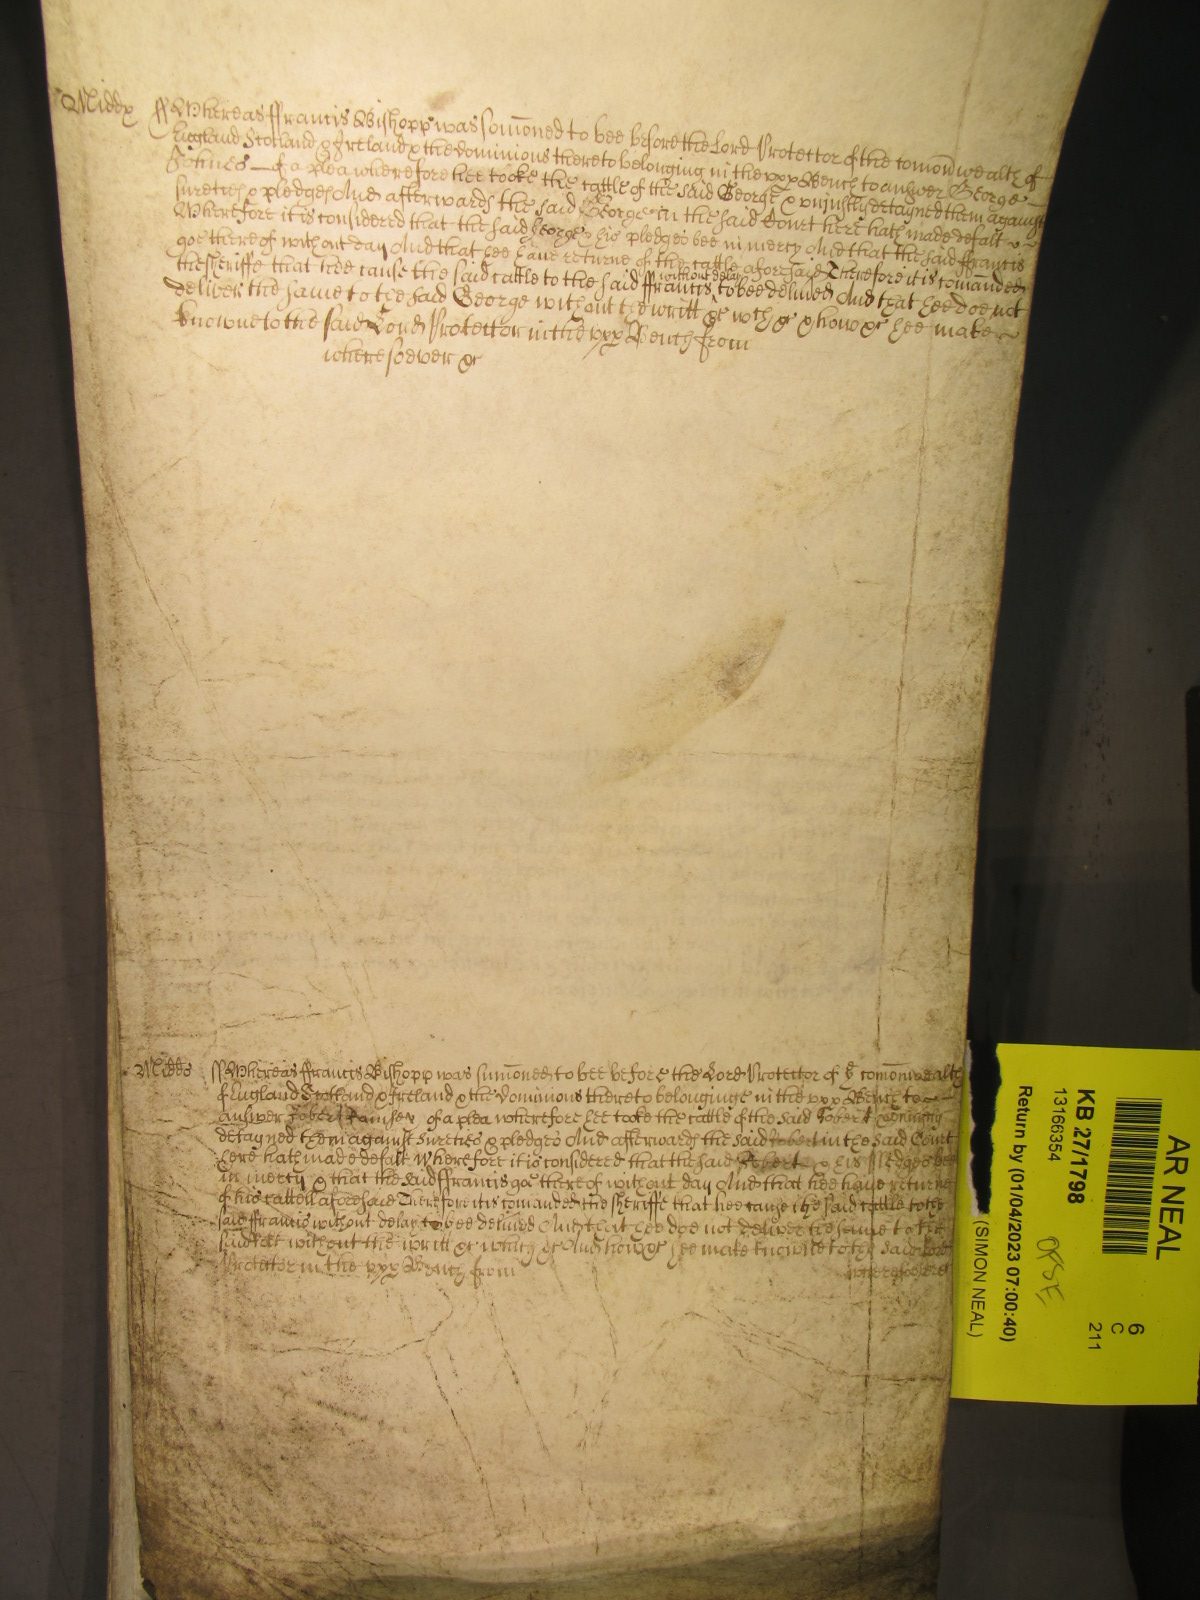 Middx ff Whereas ffrancis Bishopp was somoned to bee before the Lord Protector of the comonwealth of
England Scotland & Ireland & the dominions thereto belonging in the upp Bench to answer George
Holmes of a plea wherefore hee tooke the cattle of the said George & uniustly detayned them against
suretyes & pledges And afterwards the said George in the said Court here hath made defalt
Wherefore it is considered that the said George & his pledges bee in mercy And that the said ffrancis
goe thereof without day And that hee have returne of the cattle aforesaid Therefore it is comanded
the sheriffe that hee cause the said cattle to the said ffrancis without delay to bee deliued And that hee doe not
deliver the same to the said George without the writt &c wch &c & how &c hee make
knowne to the said Lord Protector in the upp Bench from
wheresoever &c
Midds ff Whereas ffrancis Bishopp was sumoned to bee before the Lord Protector of ye comonwealth
of England Scotland & Ireland & the dominions thereto belonginge in the upp Bench to
answer Robert Ramsey of a plea wherefore hee tooke the cattle of the said Robert & uniustly
detayned them against sureties & pledges And afterwards the said Robert in the said Court
here hath made defalt Wherefore it is considered that the said Robert & his pledges bee
in mercy & that the said ffrancis goe thereof without day And that hee have returne
of his cattell aforesaid Therefore it is comanded the sheriffe that hee cause the said cattle to the
said ffrancis without delay to bee deliued And that hee doe not deliver the same to the
said without the writt &c which &c And how &c hee make knowne to the said Lord
Protector in the upp Bench from wheresoever
AR NEAL
6
C
211
KB 27/1798
13166354
Return by (01/04/2023 07:00:40)
(SIMON NEAL)